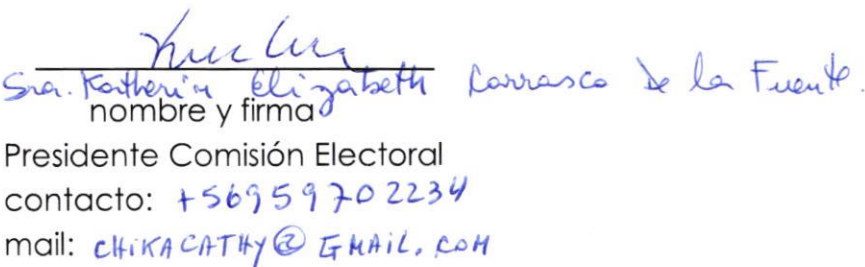 Sra. Katherin Elizabeth Carrasco De la Fuente.
nombre y firma
Presidente Comisión Electoral
contacto: +56959702234
mail: CHIKACATHY@GMAIL.COM